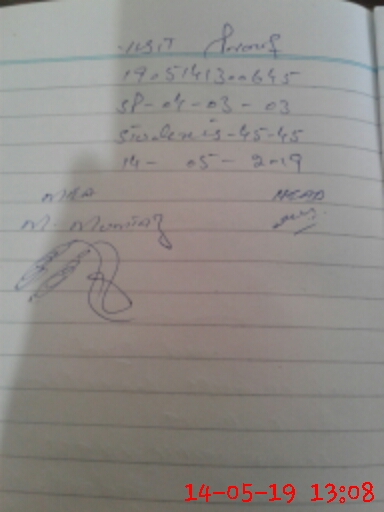 VISIT Proof
1905141300645
SP-04-03-03
45-45
14-05-2019
MEA HEAD
M. Mumtaz
14-05-19 13:08